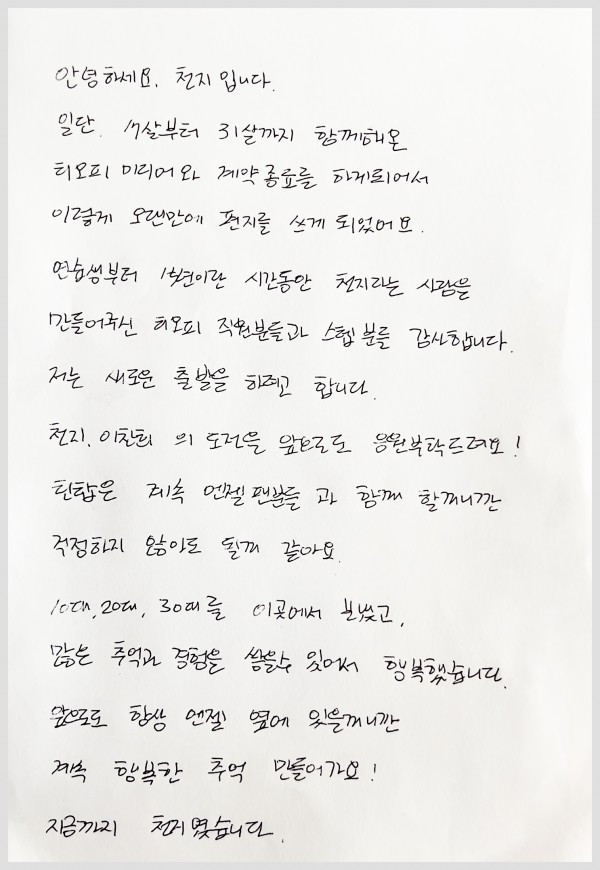 안녕하세요. 천지입니다.
일단. 17살부터 31살까지 함께해온
티오피 미디어와 계약종료를 하게되어서
이렇게 오랜만에 편지를 쓰게 되었어요.
연습생부터 15년이란 시간동안 천지라는 사람을
만들어주신 티오피 직원분들과 스텝분들 감사합니다.
저는 새로운 출발을 하려고 합니다.
천지, 이찬희 의 도전을 앞으로도 응원부탁드려요!
틴탑은 계속 엔젤팬분들 과 함께 할꺼니깐
걱정하지 않아도 될꺼 같아요.
10대, 20대, 30대를 이곳에서 보냈고,
많은 추억과 경험을 쌓을수 있어서 행복했습니다.
앞으로도 항상 엔젤 옆에 있을꺼니깐
계속 행복한 추억 만들어가요!
지금까지 천지였습니다.